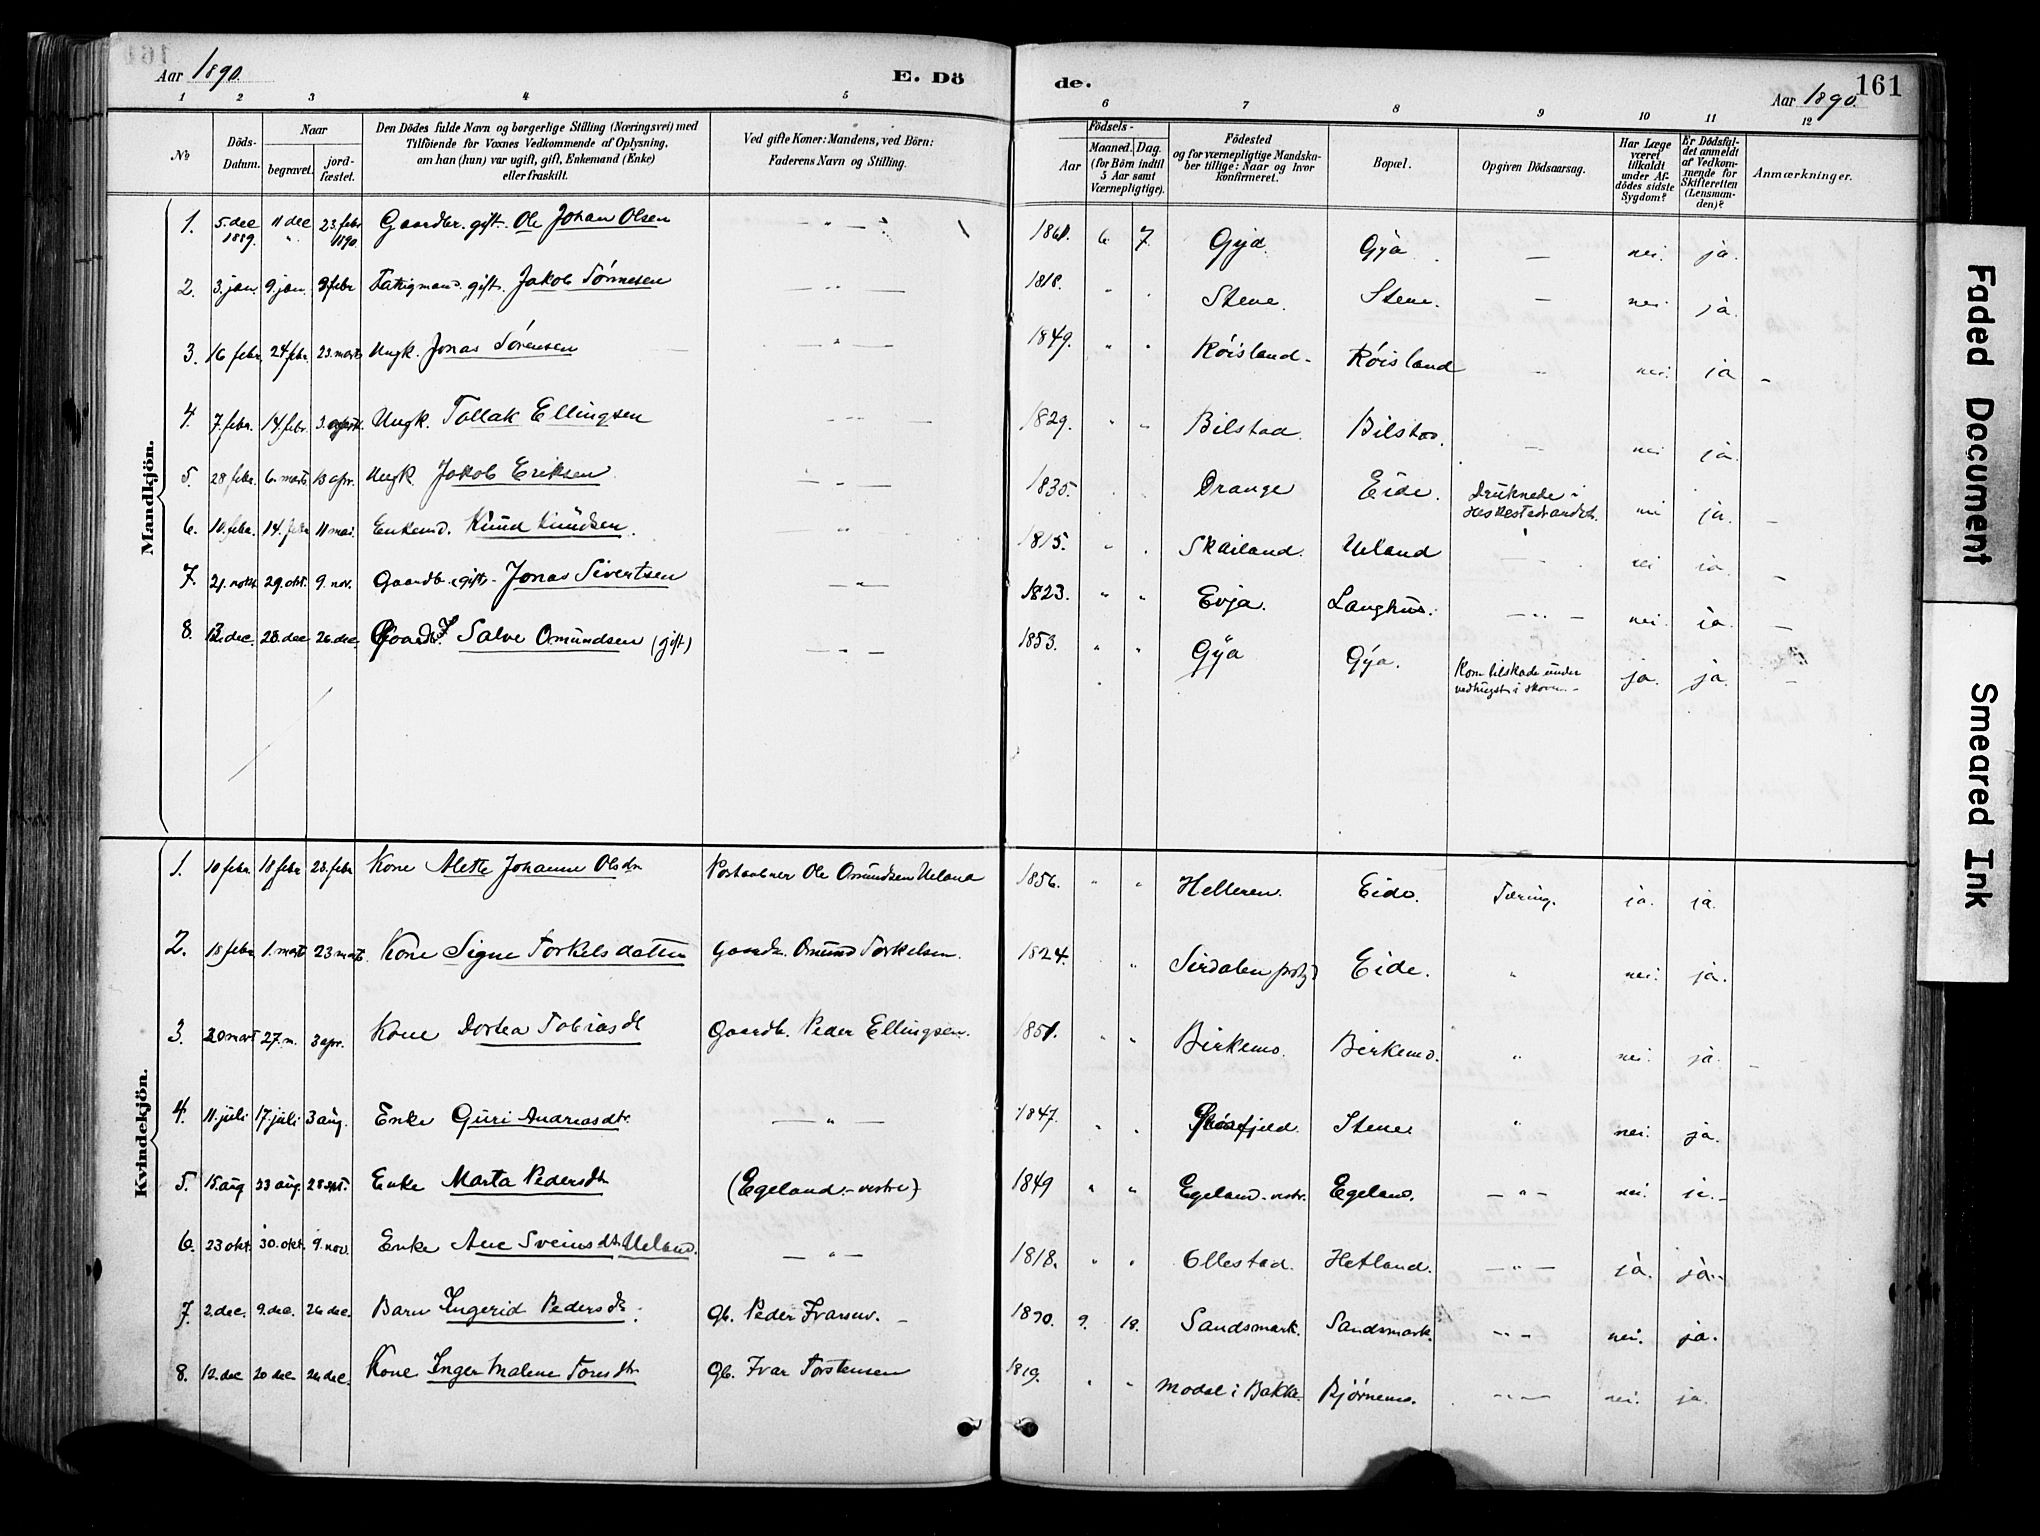 Aar 1890. E. Dö de. Aar 1890. 161
1 2 3 4 5 6 7 8 9 10 11 12
No
Döds-Datum.
Naar
begravet.
jord-fæstet.
Den Dödes fulde Navn og borgerlige Stilling (Næringsvei) med
Tilföiende for Voxnes Vedkommende af Oplysning,
om han (hun) var ugift, gift, Enkemand (Enke)
eller fraskilt.
Ved gifte Koner: Mandens, ved Börn:
Faderens Navn og Stilling.
Födsels-
Aar
Maaned. Dag.
(for Börn indtil
5 Aar samt
Værnepligtige).
Födested
og for værnepligtige Mandska-
ber tillige: Naar og hvor
konfirmeret.
Bopæl.
Opgiven Dödsaarsag.
Har Læge
været
tilkaldt
under Af-
dödes sidste
Sygdom?
Er Dödsfal-
det anmeldt
af Vedkom-
mende for
Skifteretten
(Lensman-
den)?
Anmærkninger.
Mandkjön.
1. 5. dec 1889. 11 dec " 23. febr 1890. Gaardbr. gift. Ole Johan Olsen — " — 1861. 6. 7. Gyja Gya — nei. ja.
2. 3. jan. 9. jan. 9 febr gift. Jakob Tönnesen — " — 1818. " " Stene. Stene. — nei ja.
3. 16 febr. 24 febr. 23. marts Ungk. Jonas Sörensen — " — 1849. " " Röisland. Röisland " nei. ja –
4. 7. febr. 14. febr. 3. Ungk. Tollak Ellingsen — " — 1829. " " Bilstad. Bilstad. — nei ja.
5. 28 febr. 6. marts 13 apr. Ungk Jakob Eriksen — " — 1835. Drange Eide. Druknede i nei ja. –
6. 10. febr. 14. febr 11 mai. Enkem. Knud Knudsen. " 1815. " Skailand. Ueland nei ja. –
7. 21. okt. 29. okt. 9. nov. Gaardb. gift. Jonas Sivertsen — " — 1823. " " Evja. Langhus. — " — nei. ja. –
8. dec. 28. dec 26. dec. Gaardbr. Salve Omundsen (gift) — " — 1853. " " Gÿa Gÿa. Kom tilskade under vedhugst i skoven. – ja. ja. –
Kvindekjön.
1. 10 febr. 18 febr 23. febr Kone Alette Johanne Olsdtr Postaabner Ole Omundsen Ueland 1856. " " Helleren. Eide. Tæring. ja. ja.
2. 18 febr. 1. marts 23 marts. Kone Signe Torkelsdatter Gaardbr. Omund Torkelsen. 1824. " Sirdalen prstgj Eide. " nei. ja.
3. 20 marts 27. m. 3 apr. Kone Dortea Tobiasdt Gaardb. Peder Ellingsen. 1851. " " Birkemo. Birkemo. " nei. ja. –
4. 11. juli 17. juli 3 aug. Enke Guri Andreasdtr. — " — 1847. " " Stene " nei. ja.
5. 15. aug 23 aug. 28 spt. Enke Marta Pedersdtr (Egeland – vestre) 1849 " " Egeland – vestr. Egeland. — " — nei. ja. –
6. 23 okt. 30. okt. 9. nov. Enke Ane Sveinsdtr Ueland. — " — 1818. " " Ollestad. Hetland. — " — ja. ja.
7. 2. dec. 9. dec. 26 dec. Barn Ingerid Pedersdtr. Gb. Peder Ivarsen. – 1890. 9. 18. Sandsmark. Sandsmark. " nei. ja.
8. 12. dec 20 dec 26 dec. Kone Inger Malene Tomsdtr Gb. Ivar Torstensen 1819. " " Modal i Bakke Bjørnemo. — " — nei. ja.
Faded Document
Smeared Ink